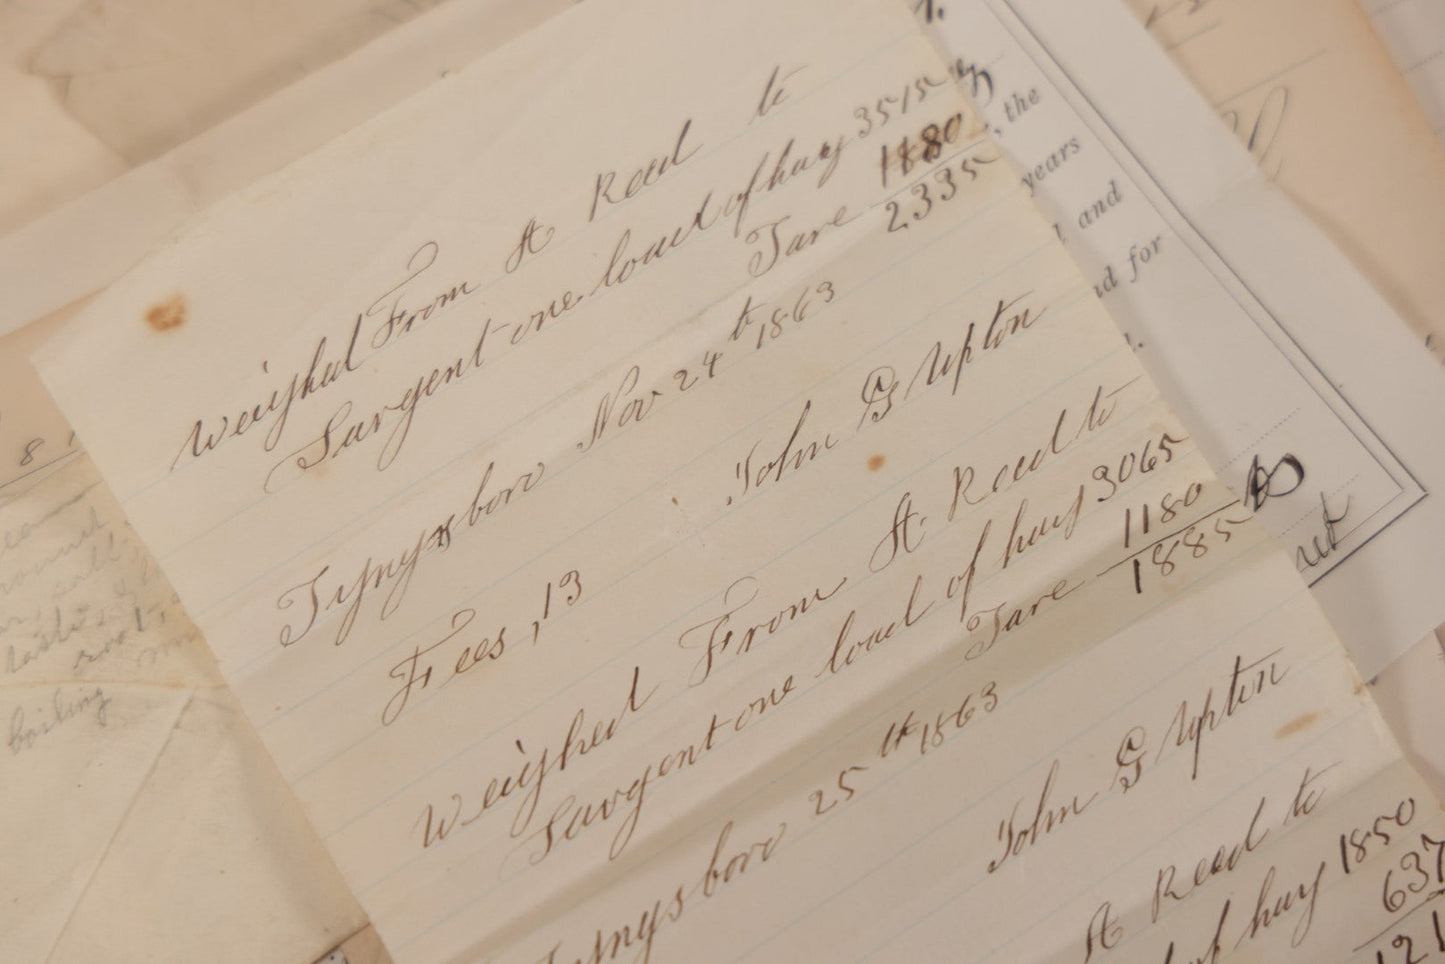 Weighed From A Reed to
Sargent one load of hay 3515
1180
Tare 2335
Tyngsboro Nov 24th 1863
John G Upton
Fees ,13
Weighed From A. Reed to
Sargent one load of hay 3065
1180
Tare 1885
Tyngsboro 25th 1863
John G Upton
A Reed to
of hay 1850
637
121
, the
years
and
for
boiling